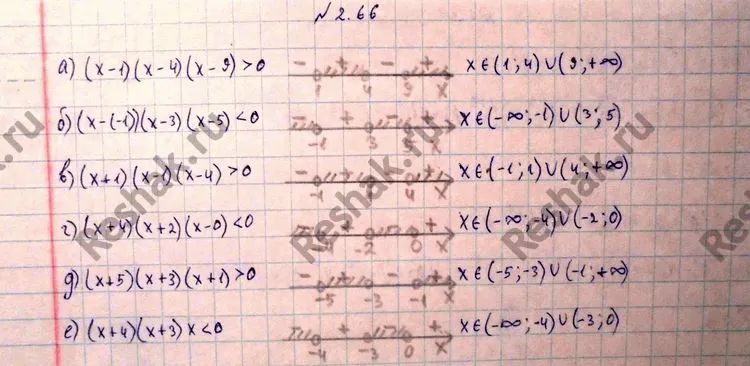 №2.66
а) (x-1)(x-4)(x-9)>0 - + - + 1 4 9 x x∈(1;4)∪(9;+∞)
б) (x-(-1))(x-3)(x-5)<0 - + - + -1 3 5 x x∈(-∞;-1)∪(3;5)
в) (x+1)(x-1)(x-4)>0 - + - + -1 1 4 x x∈(-1;1)∪(4;+∞)
г) (x+4)(x+2)(x-0)<0 - + - + -4 -2 0 x x∈(-∞;-4)∪(-2;0)
д) (x+5)(x+3)(x+1)>0 - + - + -5 -3 -1 x x∈(-5;-3)∪(-1;+∞)
е) (x+4)(x+3)x<0 - + - + -4 -3 0 x x∈(-∞;-4)∪(-3;0)
Reshak.ru
Reshak.ru
Reshak.ru